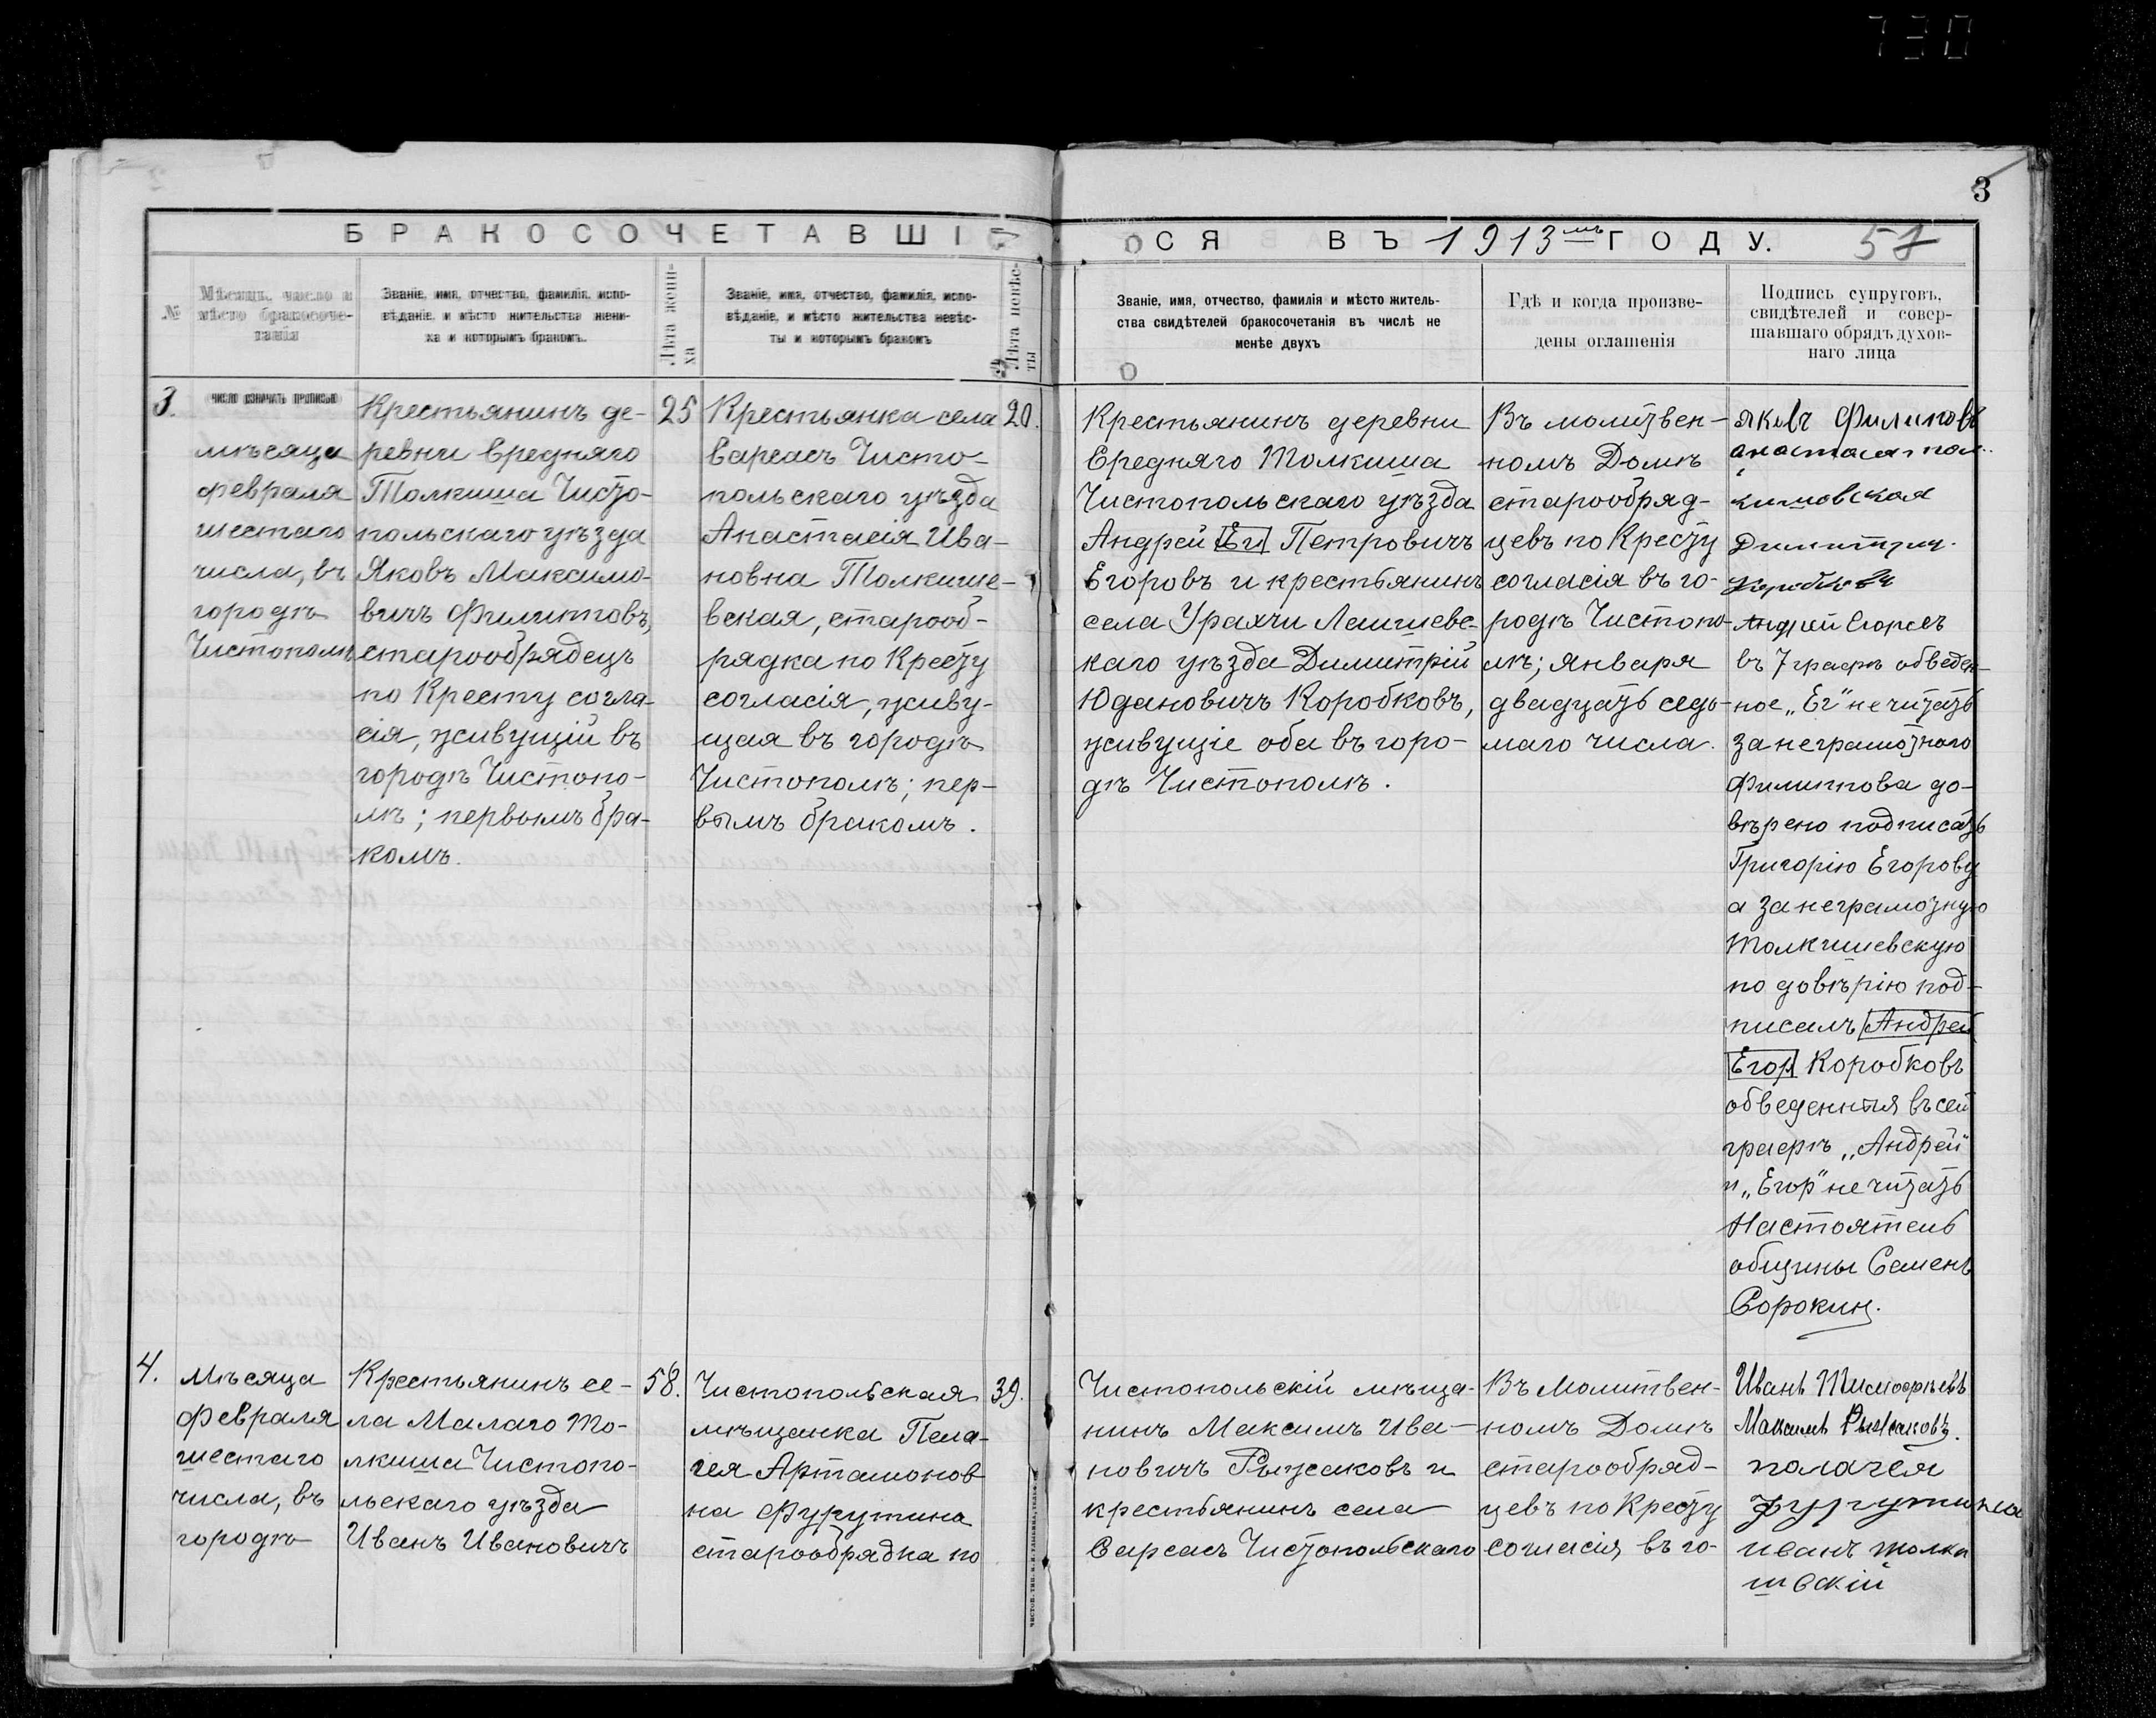 3
БРАКОСОЧЕТАВШІ
СЯ ВЪ 1913мъ ГОДУ.
57
№
Мѣсяцъ, число и
мѣсто бракосоче-
танія
Званіе, имя, отчество, фамилія, испо-
вѣданіе, и мѣсто жительства жени-
ха и которымъ бракомъ.
Лѣта жени-
ха
Званіе, имя, отчество, фамилія, испо-
вѣданіе, и мѣсто жительства невѣс-
ты и которымъ бракомъ
Лѣта невѣс-
ты
Званіе, имя, отчество, фамилія и мѣсто житель-
ства свидѣтелей бракосочетанія въ числѣ не
менѣе двухъ
Гдѣ и когда произве-
дены оглашенія
Подпись супруговъ,
свидѣтелей и совер-
шавшаго обрядъ духов-
наго лица
3.
число означать прописью
мѣсяца
февраля
шестаго
числа, въ
городѣ
Чистополѣ
Крестьянинъ де-
ревни Средняго
Толкиша Чисто-
польскаго уѣзда
Яковъ Максимо-
вичъ Филипповъ,
старообрядецъ
по Кресту согла-
сія, живущій въ
городѣ Чистопо-
лѣ; первымъ бра-
комъ.
25
Крестьянка села
Сарсасъ Чисто-
польскаго уѣзда
Анастасія Ива-
новна Толкише-
вская, старооб-
рядка по Кресту
согласія, живу-
щая въ городѣ
Чистополѣ; пер-
вымъ бракомъ.
20.
Крестьянинъ деревни
Средняго Толкиша
Чистопольскаго уѣзда
Андрей Ег Петровичъ
Егоровъ и крестьянинъ
села Урахчи Лаишевс-
каго уѣзда Димитрій
Юдановичъ Коробковъ,
живущіе оба въ горо-
дѣ Чистополѣ.
Въ молитвен-
номъ Домѣ
старообряд-
цевъ по Кресту
согласія въ го-
родѣ Чистопо-
лѣ; января
двадцать седь-
маго числа.
Яковъ Филиповъ
Анастасия тол..
кишовская
Димитрий
Коробков
Андрей Егоровъ
въ 7 графѣ обведен-
ное „Ег" не читать
за неграмотного
Филиппова до-
вѣрено подписать
Григорію Егорову
а за неграмотную
Толкишевскую
по довѣрію под-
писалъ Андрей
Егор Коробковъ
обведенныя въ сей
графѣ „Андрей"
и „Егор" не читать
Настоятель
общины Семенъ
Сорокин.
4.
Мѣсяца
Февраля
шестаго
числа, въ
городѣ
Крестьянинъ се-
ла Малаго То-
лкиша Чистопо-
льскаго уѣзда
Иванъ Ивановичъ
58.
Чистопольская
мѣщанка Пела-
гея Артамонов
на Фурутина
старообрядка по
39.
Чистопольскій мѣща-
нинъ Максимъ Ива-
новичъ Рыжаковъ и
крестьянинъ села
Сарсасъ Чистопольскаго
Въ Молитвен-
номъ Домѣ
старообряд-
цевъ по Кресту
согласія, въ го-
Иванъ Тимофѣевъ
Максимъ Рыжаковъ.
палагея
фуругинка
иванъ толки
швскій